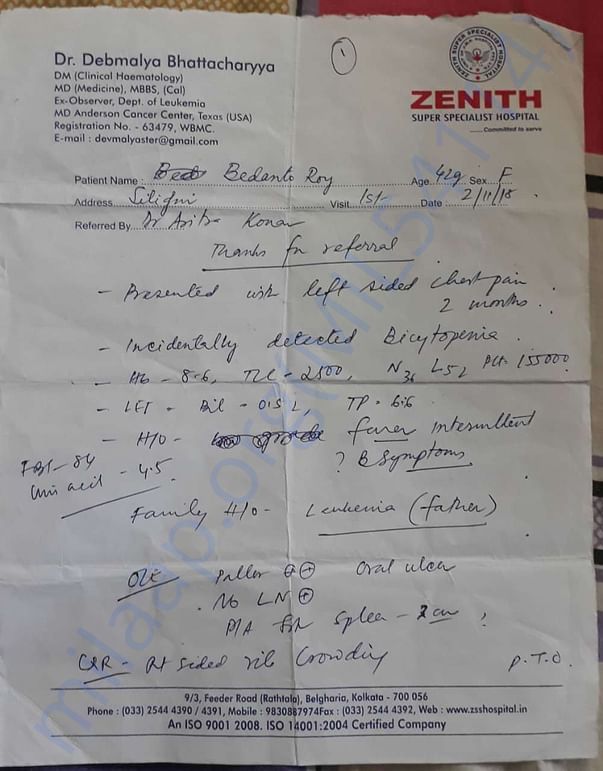 1
Dr. Debmalya Bhattacharyya
DM (Clinical Haematology)
MD (Medicine), MBBS, (Cal)
Ex-Observer, Dept. of Leukemia
MD Anderson Cancer Center, Texas (USA)
Registration No. - 63479, WBMC.
E-mail : devmalyaster@gmail.com
ZENITH SUPER SPECIALIST HOSPITAL
ZENITH
SUPER SPECIALIST HOSPITAL
......Committed to serve
Patient Name : Bedanto Roy Age 42y Sex F
Address Siliguri Visit 1st Date 2/11/18
Referred By Dr Aritra Konar
Thanks for referral
- Presented with left sided chest pain
2 months.
- Incidentally detected Bicytopenia.
- Hb - 8.6, TLC - 2500, N36 L52 Plt - 155000
- LFT - Bil - 0.52, TP - 6.6
- H/O - fever intermittent
? B Symptoms
FBS - 84
Uric acid - 4.5
Family H/O - Leukemia (father)
O/E Pallor ++ Oral ulcer
. No LN +
P/A Spleen - 2 cm ?
CXR - Rt sided rib crowding
P.T.O.
9/3, Feeder Road (Rathtala), Belgharia, Kolkata - 700 056
Phone : (033) 2544 4390 / 4391, Mobile : 9830887974 Fax : (033) 2544 4392, Web : www.zsshospital.in
An ISO 9001 2008. ISO 14001:2004 Certified Company